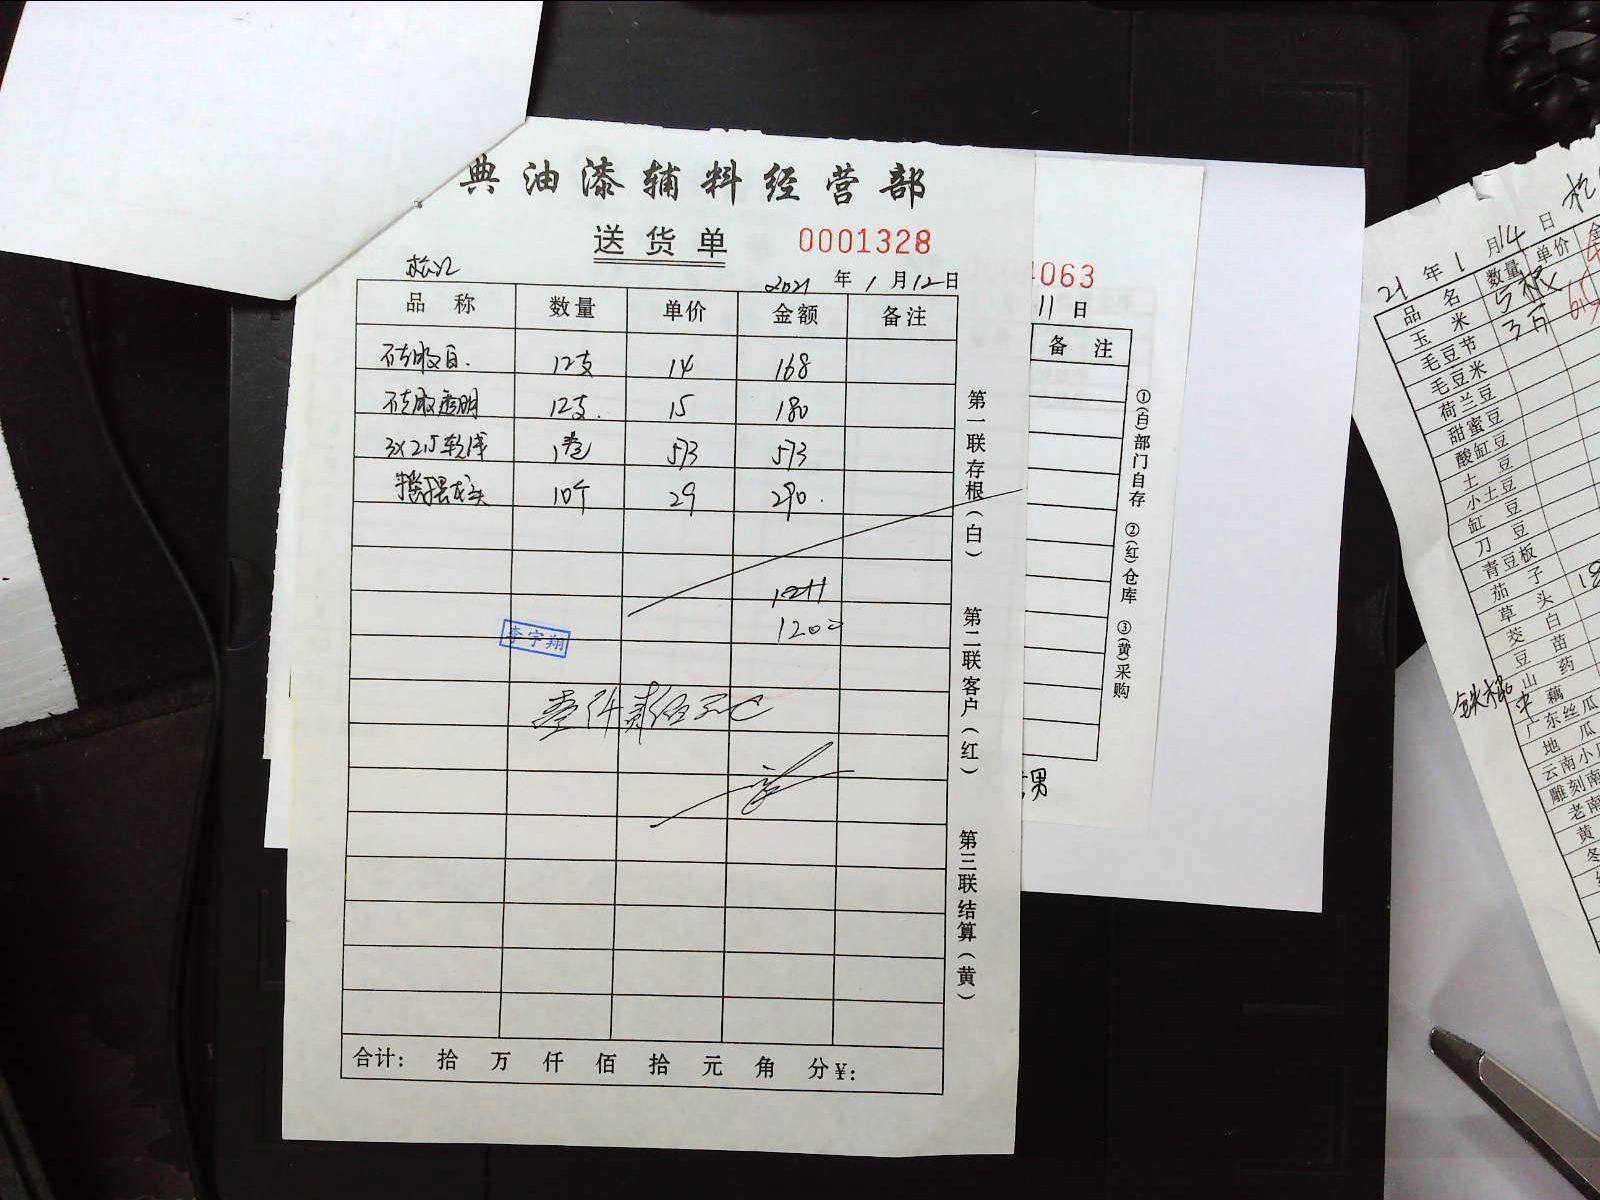 典油漆辅料经营部
送货单 0001328
松江 2021年1月12日
品称 数量 单价 金额 备注
12支 14 168
12支. 15 180
3×2.5软线 1卷 573 573
10个 29 290.
1211
1200
李宇翔
壹仟贰佰元
合计: 拾 万 仟 佰 拾 元 角 分 ¥:
第一联存根(白) 第二联客户(红) 第三联结算(黄)
4063
11日
备注
①(白)部门自存 ②(红)仓库 ③(黄)采购
男
21年1月14日
品名 数量 单价
玉米 5根
毛豆节 3斤
毛豆米
荷兰豆
甜蜜豆
酸缸豆
土豆
小土豆
缸豆
刀豆
青豆板
茄子
草头
茭白
豆苗
山药
铁棍
中藕
广东丝瓜
地瓜
云南小
雕刻南
老南
黄
冬